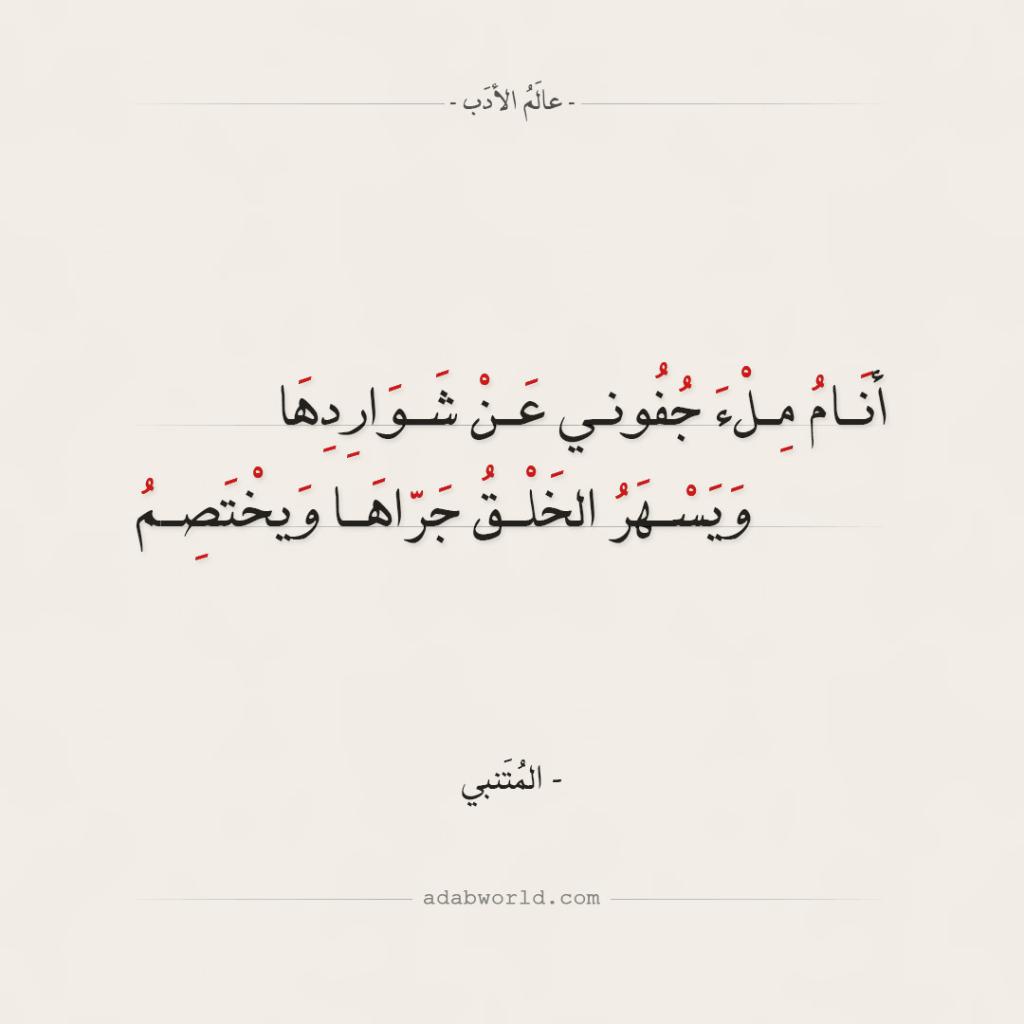 - عالَمُ الأدَب -
أَنَـامُ مِـلْءَ جُفُونـي عَـنْ شَـوَارِدِهَا
وَيَسْـهَرُ الخَلْـقُ جَرّاهَـا وَيخْتَصِـمُ
- المُتَنبي
adabworld.com